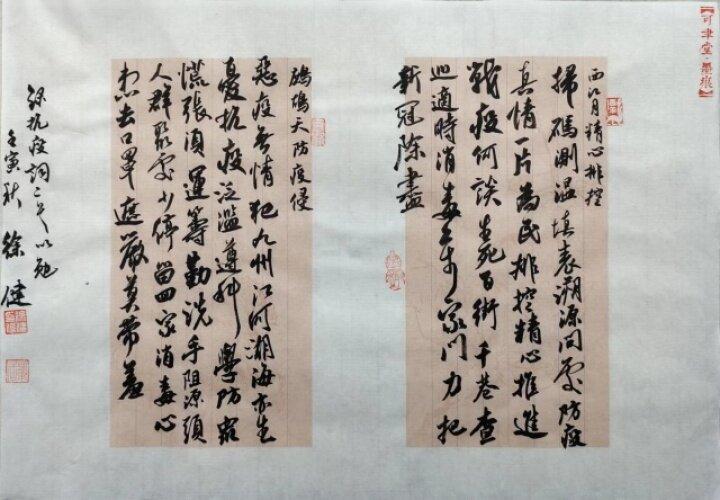 【可聿堂·墨痕】
西江月精心排控
掃碼測温填表溯源问處防疫
真情一片為民排控精心推進
戰疫何談生死百街千巷查
巡適時消毒家门力把
新冠除盡
鷓鴣天防疫侵
惡疫無情犯九州江河湖海亦生
憂抗疫泛滥遵科學防
慌張须運籌勤洗手阻源頭
人群聚處少停留回家消毒心
愁去口罩遮嚴莫帶羞
録抗疫詞二首以勉
壬寅秋 徐健